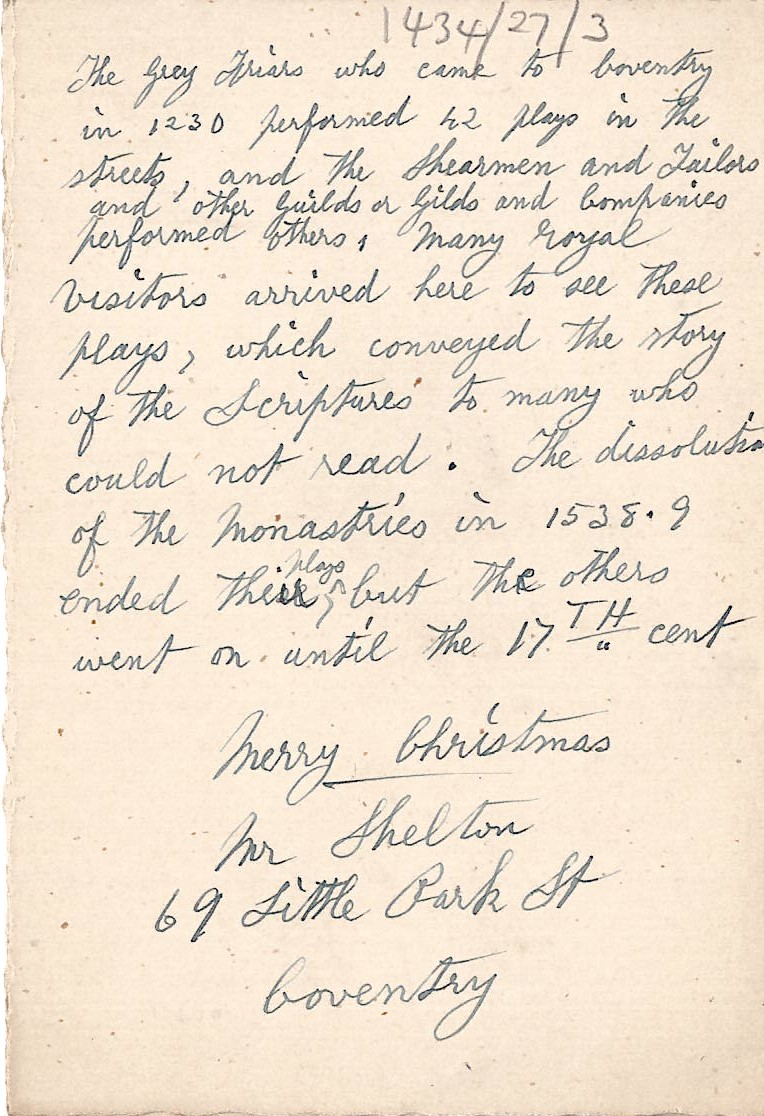 1434/27/3
The Grey Friars who came to Coventry
in 1230 performed 42 plays in the
streets, and the Shearmen and Tailors
and other Guilds or Gilds and Companies
performed others, Many royal
Visitors arrived here to see these
plays, which conveyed the story
of the Scriptures to many who
could not read. The dissolution
of the Monastries in 1538.9
ended their plays, but the others
went on until the 17TH cent
Merry Christmas
Mr Shelton
69 Little Park St
Coventry